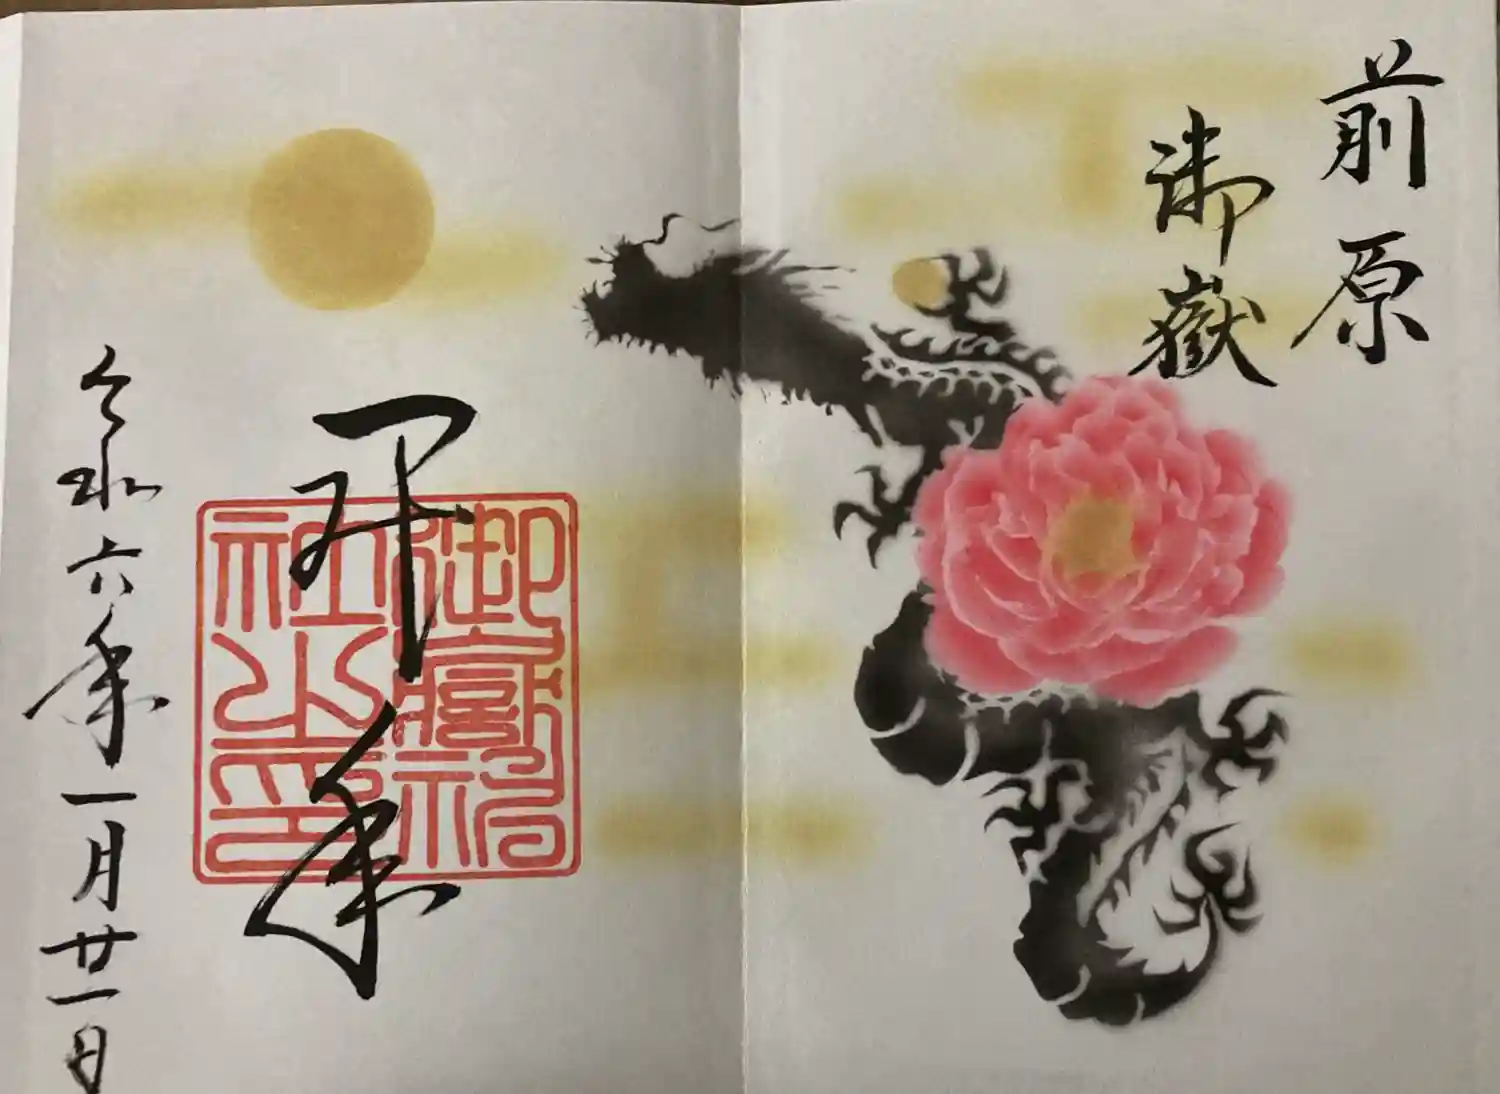 前原
御嶽
年
御嶽神
社之印
令和六年一月廿一日